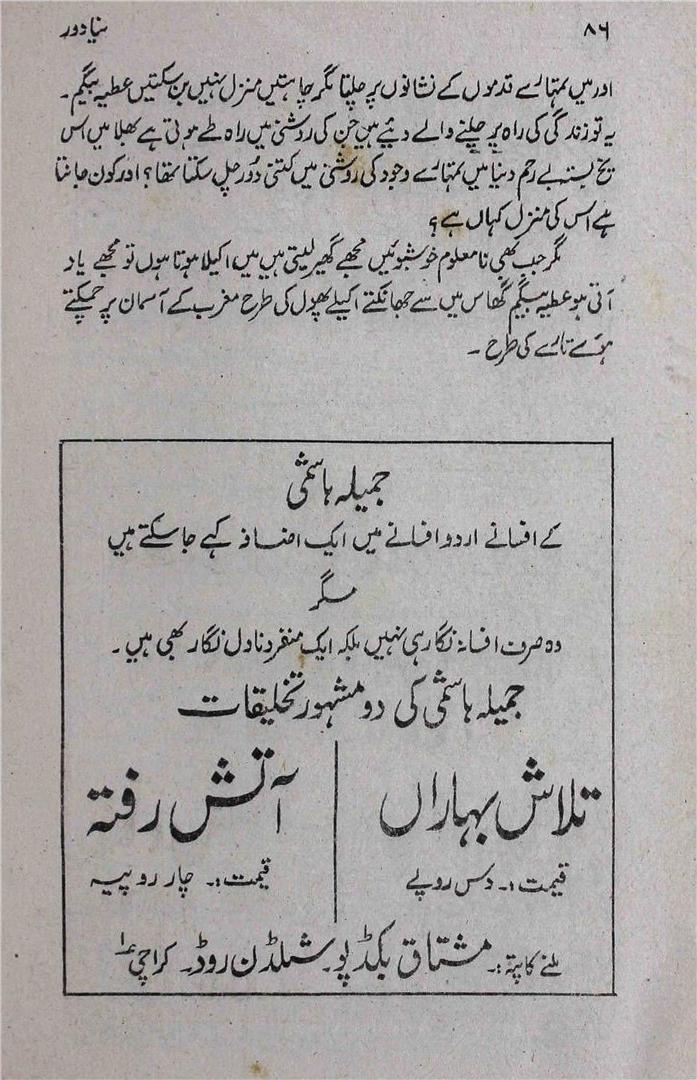 ۸۶
نیا دور
اور میں تمہارے قدموں کے نشانوں پر چلتا مگر چاہتیں منزل نہیں بن سکتیں عطیہ بیگم۔
یہ تو زندگی کی راہ پر چلنے والے دیئے ہیں جن کی روشنی میں راہ طے ہوتی ہے بھلا میں اس
یخ بستہ بے رحم دنیا میں تمہارے وجود کی روشنی میں کتنی دُور چل سکتا تھا؟ اور کون جانتا
ہے اس کی منزل کہاں ہے؟
مگر جب بھی نامعلوم خوشبوئیں مجھے گھیر لیتی ہیں میں اکیلا ہوتا ہوں تو مجھے یاد
آتی ہو عطیہ بیگم گھاس میں سے جھانکتے اکیلے پھول کی طرح مغرب کے آسمان پر چمکتے
ہوئے تارے کی طرح ۔
جمیلہ ہاشمی
کے افسانے اردو افسانے میں ایک اضافہ کہے جا سکتے ہیں
مگر
وہ صرف افسانہ نگار ہی نہیں بلکہ ایک منفرد ناول نگار بھی ہیں۔
جمیلہ ہاشمی کی دو مشہور تخلیقات
تلاش بہاراں
قیمت :۔ دس روپے
آتش رفتہ
قیمت :۔ چار روپیہ
ملنے کا پتہ :۔ مشتاق بکڈپو۔ شلڈن روڈ۔ کراچی ۱